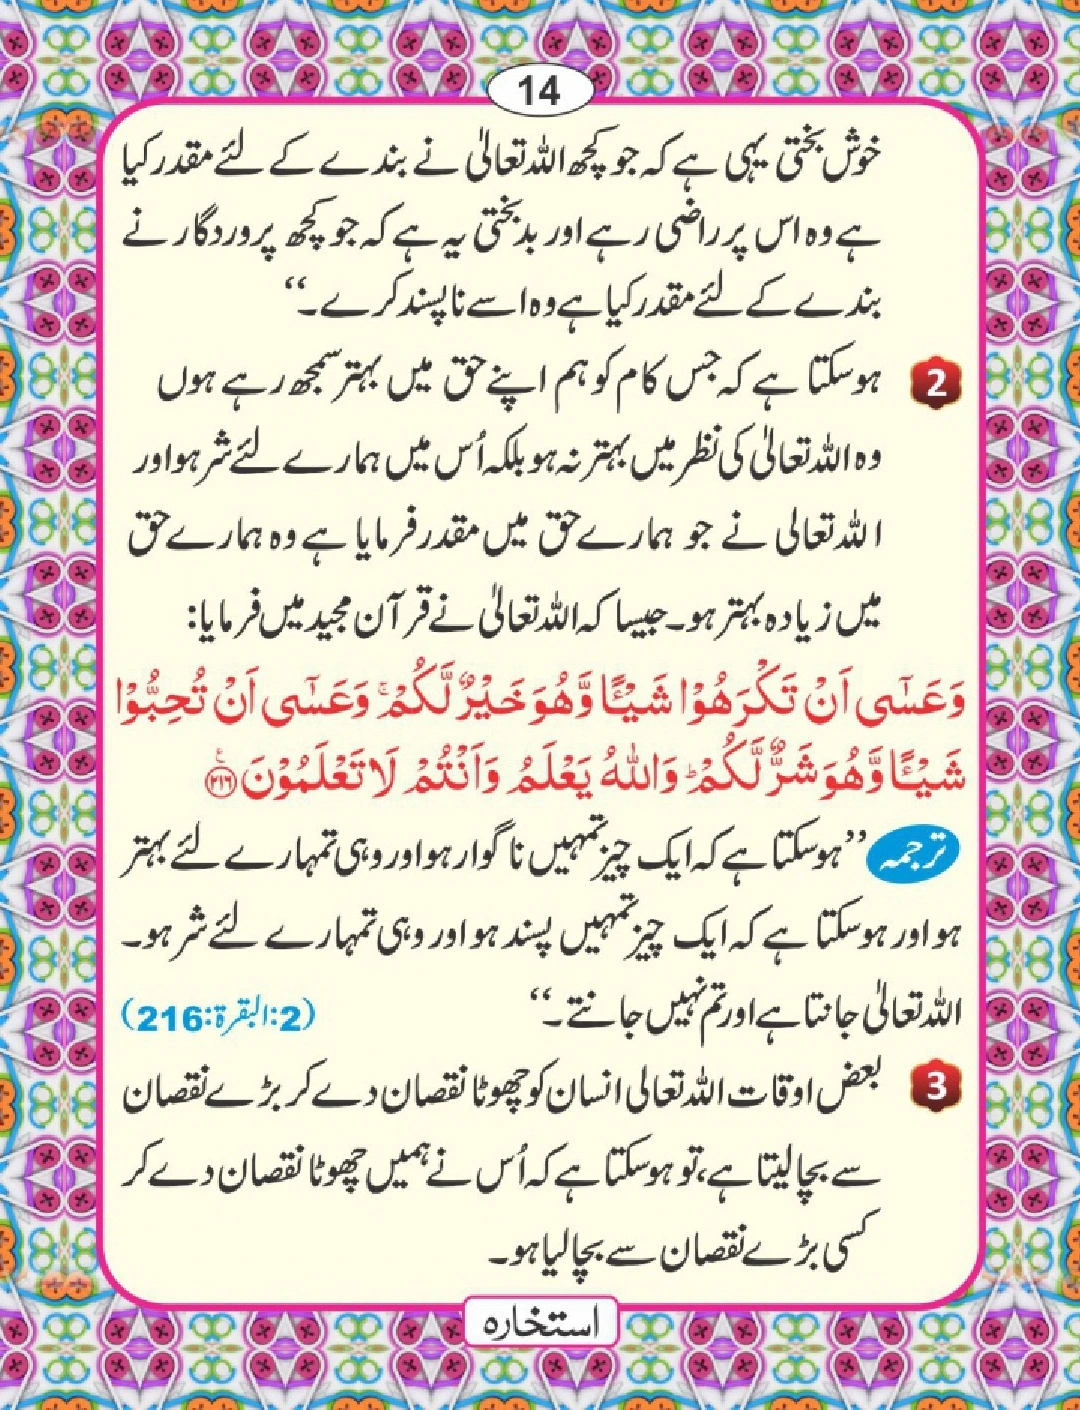 14
خوش بختی یہی ہے کہ جو کچھ اللہ تعالیٰ نے بندے کے لئے مقدر کیا
ہے وہ اس پر راضی رہے اور بدبختی یہ ہے کہ جو کچھ پروردگار نے
بندے کے لئے مقدر کیا ہے وہ اسے ناپسند کرے۔“
2 ہوسکتا ہے کہ جس کام کو ہم اپنے حق میں بہتر سمجھ رہے ہوں
وہ اللہ تعالیٰ کی نظر میں بہتر نہ ہو بلکہ اُس میں ہمارے لئے شر ہو اور
اللہ تعالی نے جو ہمارے حق میں مقدر فرمایا ہے وہ ہمارے حق
میں زیادہ بہتر ہو۔ جیسا کہ اللہ تعالیٰ نے قرآن مجید میں فرمایا:
وَعَسٰۤى اَنْ تَكْرَهُوْا شَيْـًٔا وَّهُوَ خَيْرٌ لَّكُمْ ۚ وَعَسٰۤى اَنْ تُحِبُّوْا
شَيْـًٔا وَّهُوَ شَرٌّ لَّكُمْ ؕ وَاللّٰهُ يَعْلَمُ وَاَنْتُمْ لَا تَعْلَمُوْنَ ﴿۲۱۶﴾
ترجمہ ”ہوسکتا ہے کہ ایک چیز تمہیں ناگوار ہو اور وہی تمہارے لئے بہتر
ہو اور ہوسکتا ہے کہ ایک چیز تمہیں پسند ہو اور وہی تمہارے لئے شر ہو۔
اللہ تعالیٰ جانتا ہے اور تم نہیں جانتے۔“ (2:البقرة:216)
3 بعض اوقات اللہ تعالی انسان کو چھوٹا نقصان دے کر بڑے نقصان
سے بچا لیتا ہے، تو ہوسکتا ہے کہ اُس نے ہمیں چھوٹا نقصان دے کر
کسی بڑے نقصان سے بچا لیا ہو۔
استخارہ